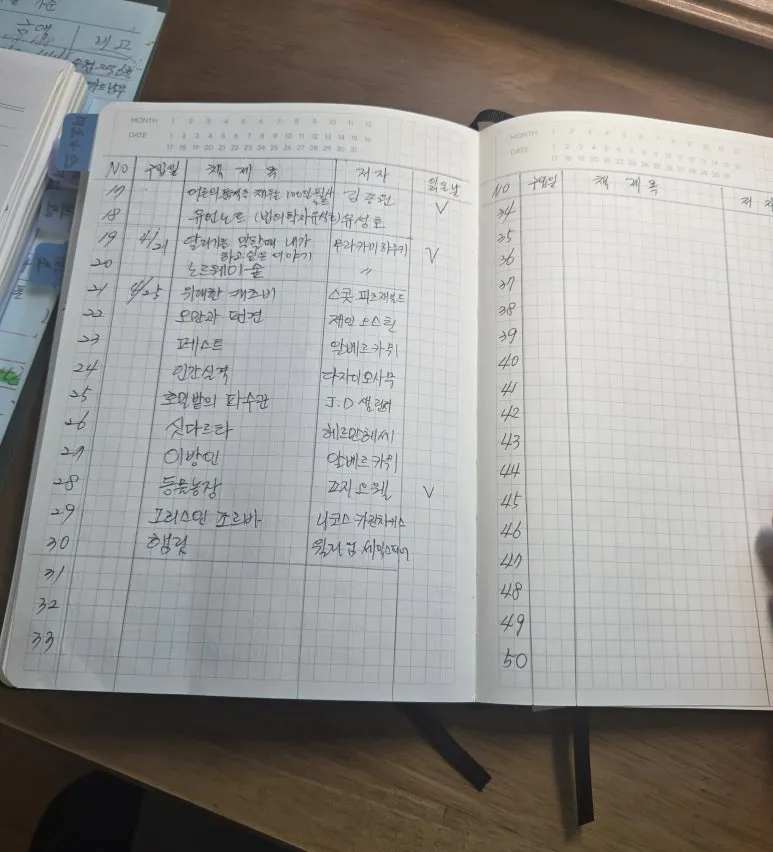 제 고
MONTH 1 2 3 4 5 6 7 8 9 10 11 12
DATE 1 2 3 4 5 6 7 8 9 10 11 12 13 14 15 16
17 18 19 20 21 22 23 24 25 26 27 28 29 30 31
NO 구입일 책 제 목 저 자 읽은날
17 어른의 품격을 채우는 100일 필사 김종원 V
18 유언노트 (법의학자 유성호) 유성호
19 4/21 달리기를 말할때 내가 무라카미하루키 V
하고 싶은 이야기
20 노르웨이 숲 〃
21 4/25 위대한 개츠비 스콧 피츠제럴드
22 오만과 편견 제인 오스틴
23 페스트 알베르카뮈
24 인간실격 다자이오사무
25 호밀밭의 파수꾼 J.D 샐린저
26 싯다르타 헤르만헤세
27 이방인 알베르 카뮈
28 동물농장 조지 오웰 V
29 그리스인 조르바 니코스 카잔차키스
30 햄릿 윌리엄 셰익스피어
31
32
33
MONTH 1 2 3 4 5 6 7 8 9 10 11 12
DATE 1 2 3 4 5 6 7 8 9 10 11 12 13 14 15 16
17 18 19 20 21 22 23 24 25 26 27 28 29 30 31
NO 구입일 책 제 목 저 자
34
35
36
37
38
39
40
41
42
43
44
45
46
47
48
49
50